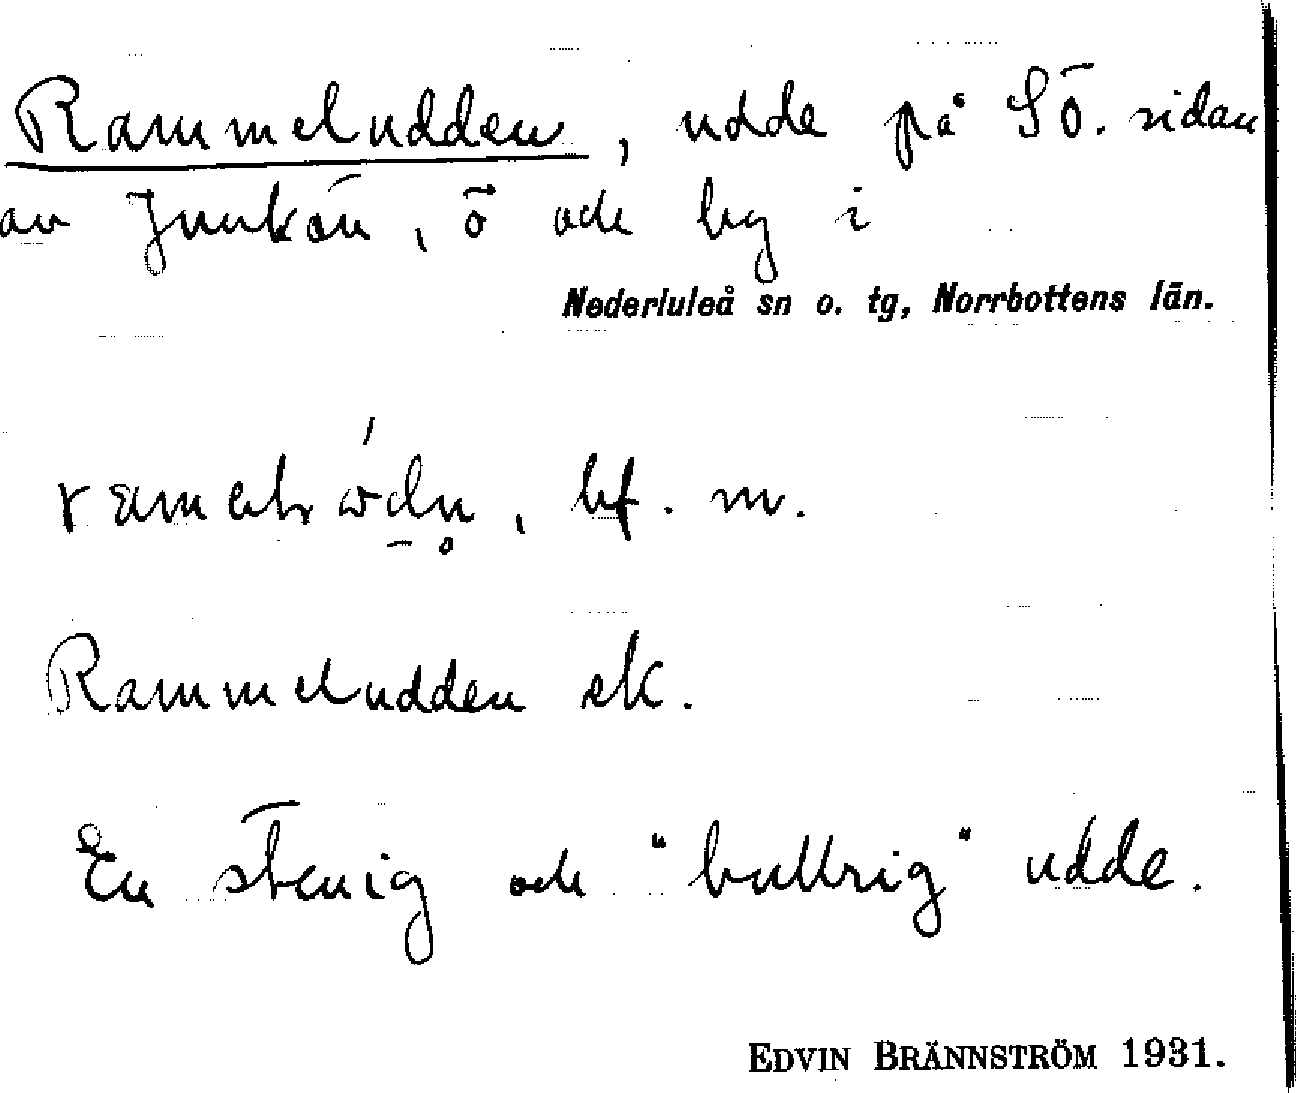 Rammeludden, udde på SÖ. sidan
av Junkön, ö och by i
Nederluleå sn o. tg, Norrbottens län.
bf. m.
Rammeludden ek.
En stenig och "bullrig" udde.
EDVIN BRÄNNSTRÖM 1931.